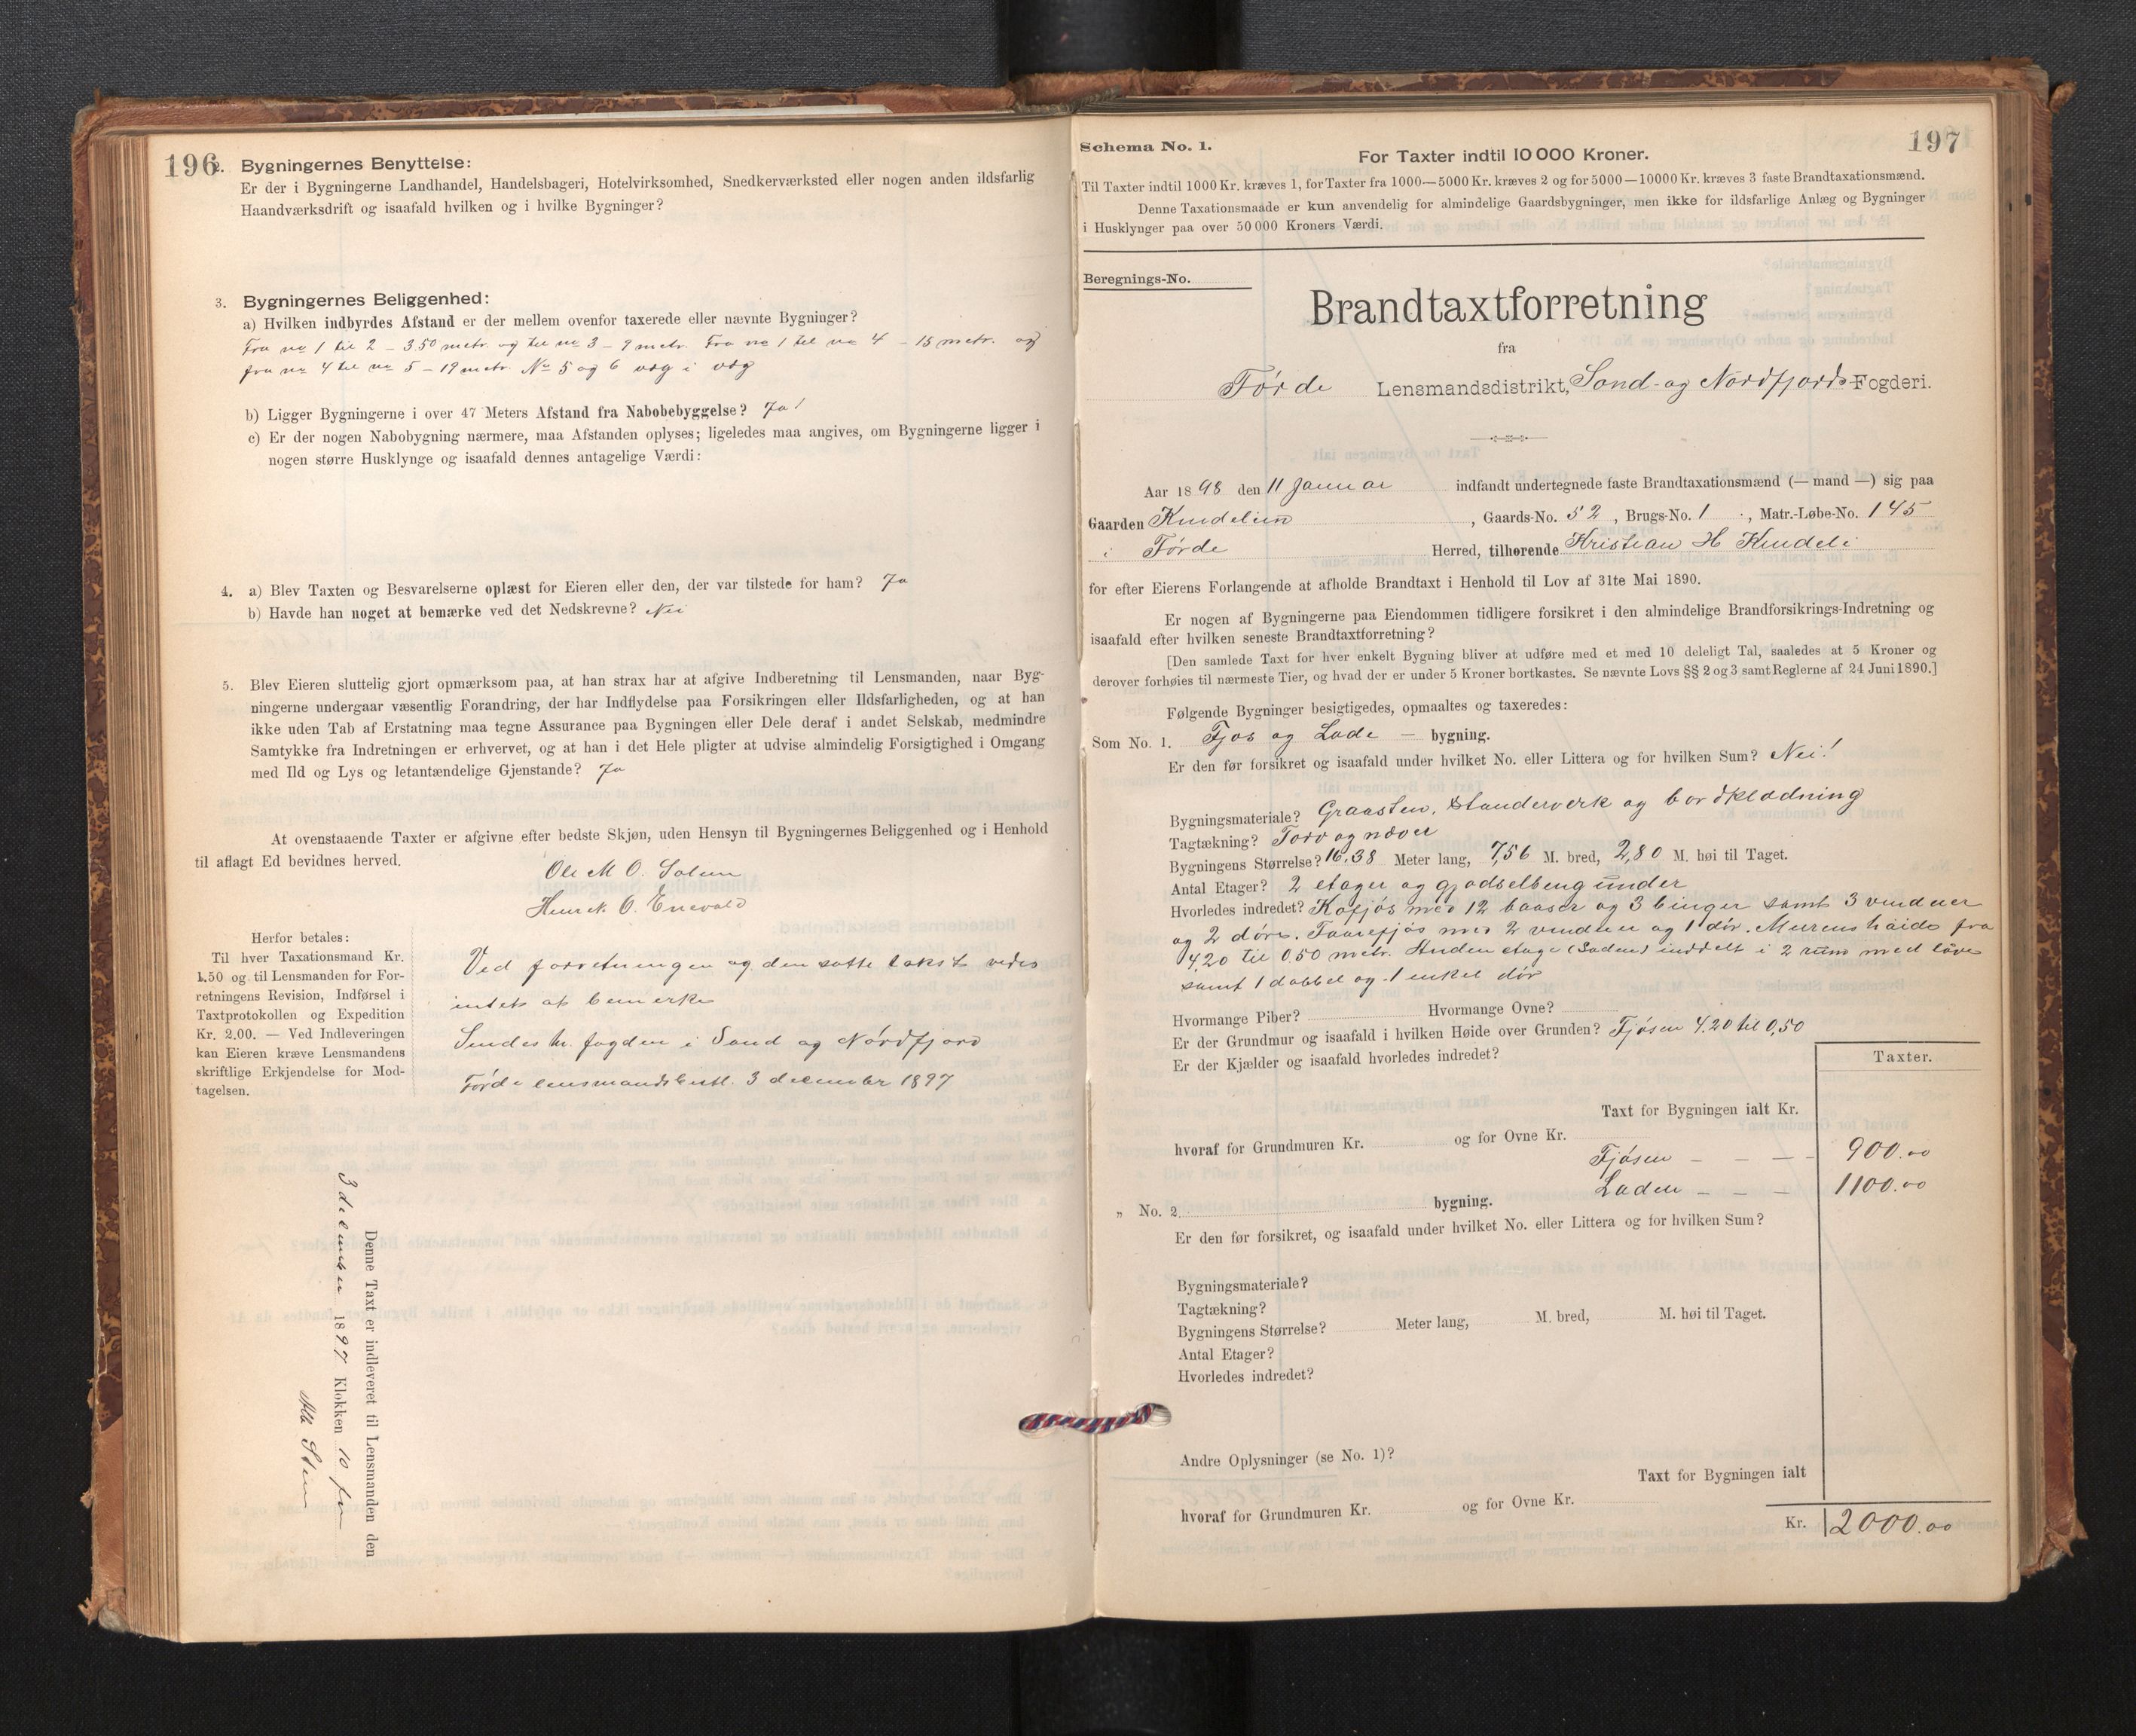 196
2. Bygningernes Benyttelse:
Er der i Bygningerne Landhandel, Handelsbageri, Hotelvirksomhed, Snedkerværksted eller nogen anden ildsfarlig
Haandværksdrift og isaafald hvilken og i hvilke Bygninger?
3. Bygningernes Beliggenhed:
a) Hvilken indbyrdes Afstand er der mellem ovenfor taxerede eller nævnte Bygninger?
Fra no 1 til 2 – 3.50 metr. og til no 3 – 9 metr. Fra no 1 til no 4 – 15 metr. og
fra no 4 til no 5 – 19 metr. No 5 og 6 væg i væg
b) Ligger Bygningerne i over 47 Meters Afstand fra Nabobebyggelse? Ja!
c) Er der nogen Nabobygning nærmere, maa Afstanden oplyses; ligeledes maa angives, om Bygningerne ligger i
nogen større Husklynge og isaafald dennes antagelige Værdi:
4. a) Blev Taxten og Besvarelserne oplæst for Eieren eller den, der var tilstede for ham? Ja
b) Havde han noget at bemærke ved det Nedskrevne? Nei
5. Blev Eieren sluttelig gjort opmærksom paa, at han strax har at afgive Indberetning til Lensmanden, naar Byg-
ningerne undergaar væsentlig Forandring, der har Indflydelse paa Forsikringen eller Ildsfarligheden, og at han
ikke uden Tab af Erstatning maa tegne Assurance paa Bygningen eller Dele deraf i andet Selskab, medmindre
Samtykke fra Indretningen er erhvervet, og at han i det Hele pligter at udvise almindelig Forsigtighed i Omgang
med Ild og Lys og letantændelige Gjenstande? Ja
At ovenstaaende Taxter er afgivne efter bedste Skjøn, uden Hensyn til Bygningernes Beliggenhed og i Henhold
til aflagt Ed bevidnes herved.
Ole M O. Solem
Henrik O.
Herfor betales:
Til hver Taxationsmand Kr.
1.50 og til Lensmanden for For-
retningens Revision, Indførsel i
Taxtprotokollen og Expedition
Kr. 2.00. — Ved Indleveringen
kan Eieren kræve Lensmandens
skriftlige Erkjendelse for Mod-
tagelsen.
Ved forretningen og den satte takst vides
intet at bemerke
Sendes hr. fogden i Sønd og Nórdfjord
Fórde lensmandsbestl. 3 december 1897
Denne Taxt er indleveret til Lensmanden den
3 december 1897 Klokken 10 fm
197
Schema No. 1.
For Taxter indtil 10 000 Kroner.
Til Taxter indtil 1000 Kr. kræves 1, for Taxter fra 1000—5000 Kr. kræves 2 og for 5000—10000 Kr. kræves 3 faste Brandtaxationsmænd.
Denne Taxationsmaade er kun anvendelig for almindelige Gaardsbygninger, men ikke for ildsfarlige Anlæg og Bygninger
i Husklynger paa over 50 000 Kroners Værdi.
Beregnings-No.
Brandtaxtforretning
fra
Fórde Lensmandsdistrikt, Sønd- og Nordfjords Fogderi.
Aar 1898 den 11 Januar indfandt undertegnede faste Brandtaxationsmænd (— mand —) sig paa
Gaarden , Gaards-No. 52, Brugs-No. 1, Matr.-Løbe-No. 145
i Fórde Herred, tilhørende Kristian H
for efter Eierens Forlangende at afholde Brandtaxt i Henhold til Lov af 31te Mai 1890.
Er nogen af Bygningerne paa Eiendommen tidligere forsikret i den almindelige Brandforsikrings-Indretning og
isaafald efter hvilken seneste Brandtaxtforretning?
[Den samlede Taxt for hver enkelt Bygning bliver at udføre med et med 10 deleligt Tal, saaledes at 5 Kroner og
derover forhøies til nærmeste Tier, og hvad der er under 5 Kroner bortkastes. Se nævnte Lovs §§ 2 og 3 samt Reglerne af 24 Juni 1890.]
Følgende Bygninger besigtigedes, opmaaltes og taxeredes:
Som No. 1. Fjøs og Lade – bygning.
Er den før forsikret og isaafald under hvilket No. eller Littera og for hvilken Sum? Nei!
Bygningsmateriale? Graasten, standerverk og bordklædning
Tagtækning? Torv og næver
Bygningens Størrelse? 16,38 Meter lang, 7,56 M. bred, 2,80 M. høi til Taget.
Antal Etager? 2 etager og gjødselbeng under
Hvorledes indredet? Kofjós med 12 baaser og 3 binger samt 3 vinduer
og 2 dóre. Faarefjós med 2 vinduer og 1 dór. Murens høide fra
4,20 til 0,50 metr. Anden etage (Laden) inddelt i 2 rum med
samt 1 dobbel og 1 enkel dór
Hvormange Piber? Hvormange Ovne?
Er der Grundmur og isaafald i hvilken Høide over Grunden? Fjósen 4.20 til 0,50
Er der Kjælder og isaafald hvorledes indredet?
Taxter.
Taxt for Bygningen ialt Kr.
hvoraf for Grundmuren Kr. og for Ovne Kr.
Fjósen – – – 900.00
Laden – – – 1100.00
„ No. 2 bygning.
Er den før forsikret, og isaafald under hvilket No. eller Littera og for hvilken Sum?
Bygningsmateriale?
Tagtækning?
Bygningens Størrelse? Meter lang, M. bred, M. høi til Taget.
Antal Etager?
Hvorledes indredet?
Andre Oplysninger (se No. 1)?
Taxt for Bygningen ialt
hvoraf for Grundmuren Kr. og for Ovne Kr.
Kr. 2000.00